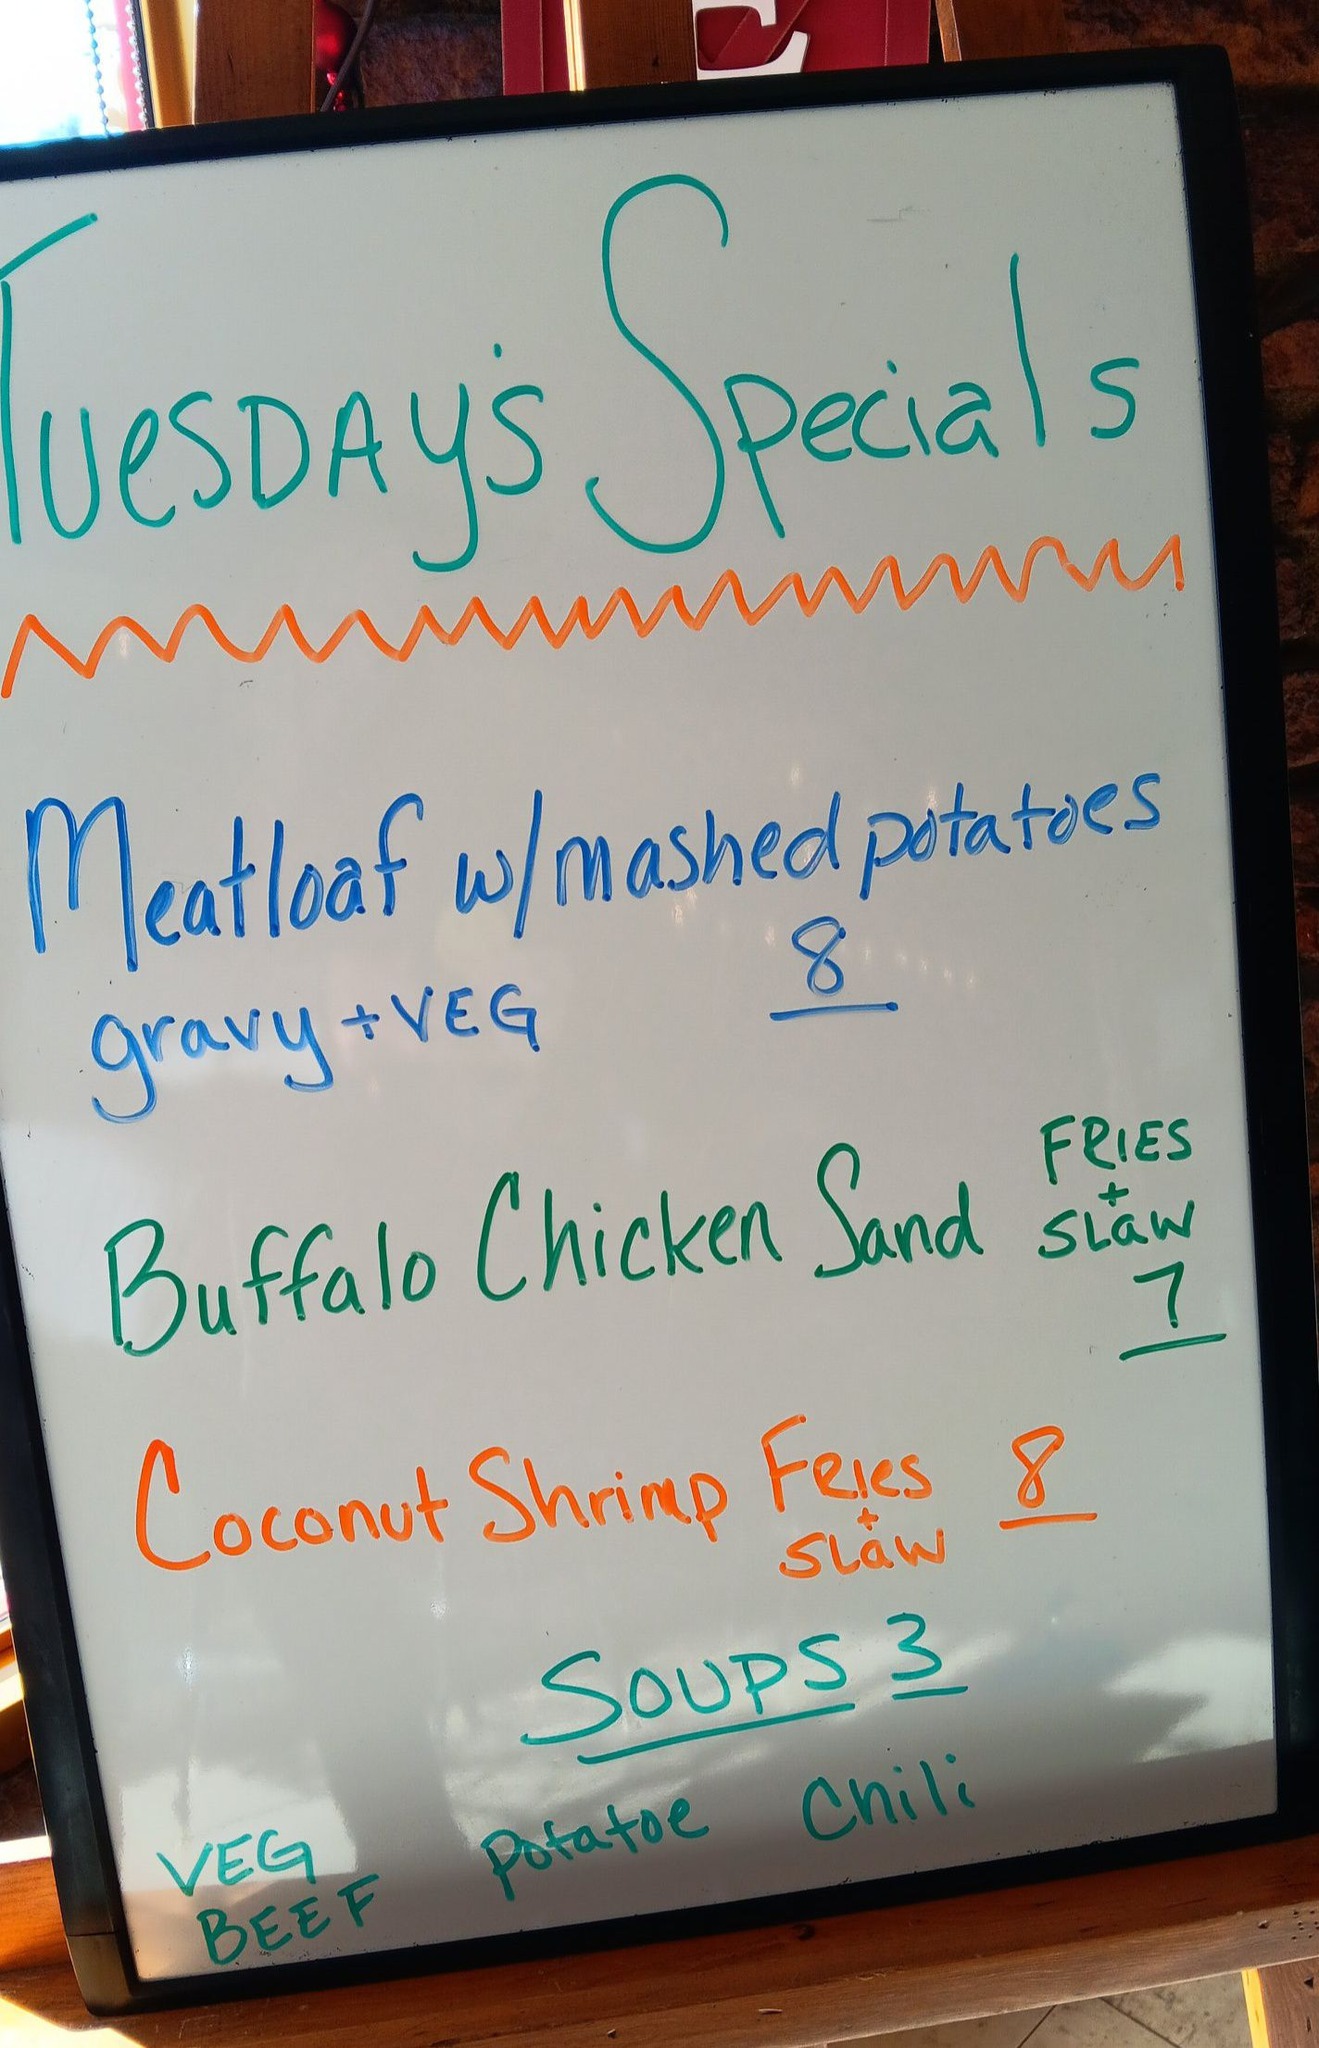 E
Tuesday's Specials
Meatloaf w/mashed potatoes
gravy + VEG 8
Buffalo Chicken Sand FRIES
+
SLaW
7
Coconut Shrimp Fries 8
+
SLaW
SOUPS 3
VEG potatoe Chili
BEEF